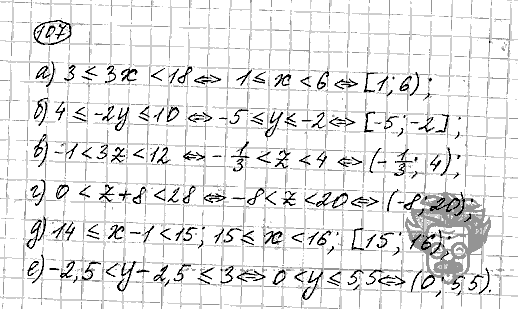 107
а) 3 ≤ 3x < 18 ⇔ 1 ≤ x < 6 ⇔ [1; 6);
б) 4 ≤ -2y ≤ 10 ⇔ -5 ≤ y ≤ -2 ⇔ [-5; -2];
в) -1 < 3z < 12 ⇔ -1/3 < z < 4 ⇔ (-1/3; 4);
г) 0 < z+8 < 28 ⇔ -8 < z < 20 ⇔ (-8; 20);
д) 14 ≤ x-1 < 15; 15 ≤ x < 16; [15; 16);
е) -2,5 < y-2,5 ≤ 3 ⇔ 0 < y ≤ 5,5 ⇔ (0; 5,5).